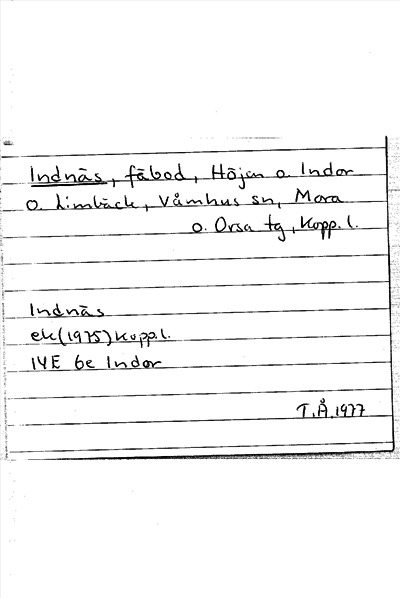 Indnäs, fäbod, Höjen o. Indor
o. Limbäck, Våmhus sn, Mora
o. Orsa tg, Kopp. l.
Indnäs
ek (1975) Kopp. l.
14E 6e Indor
T.Å. 1977